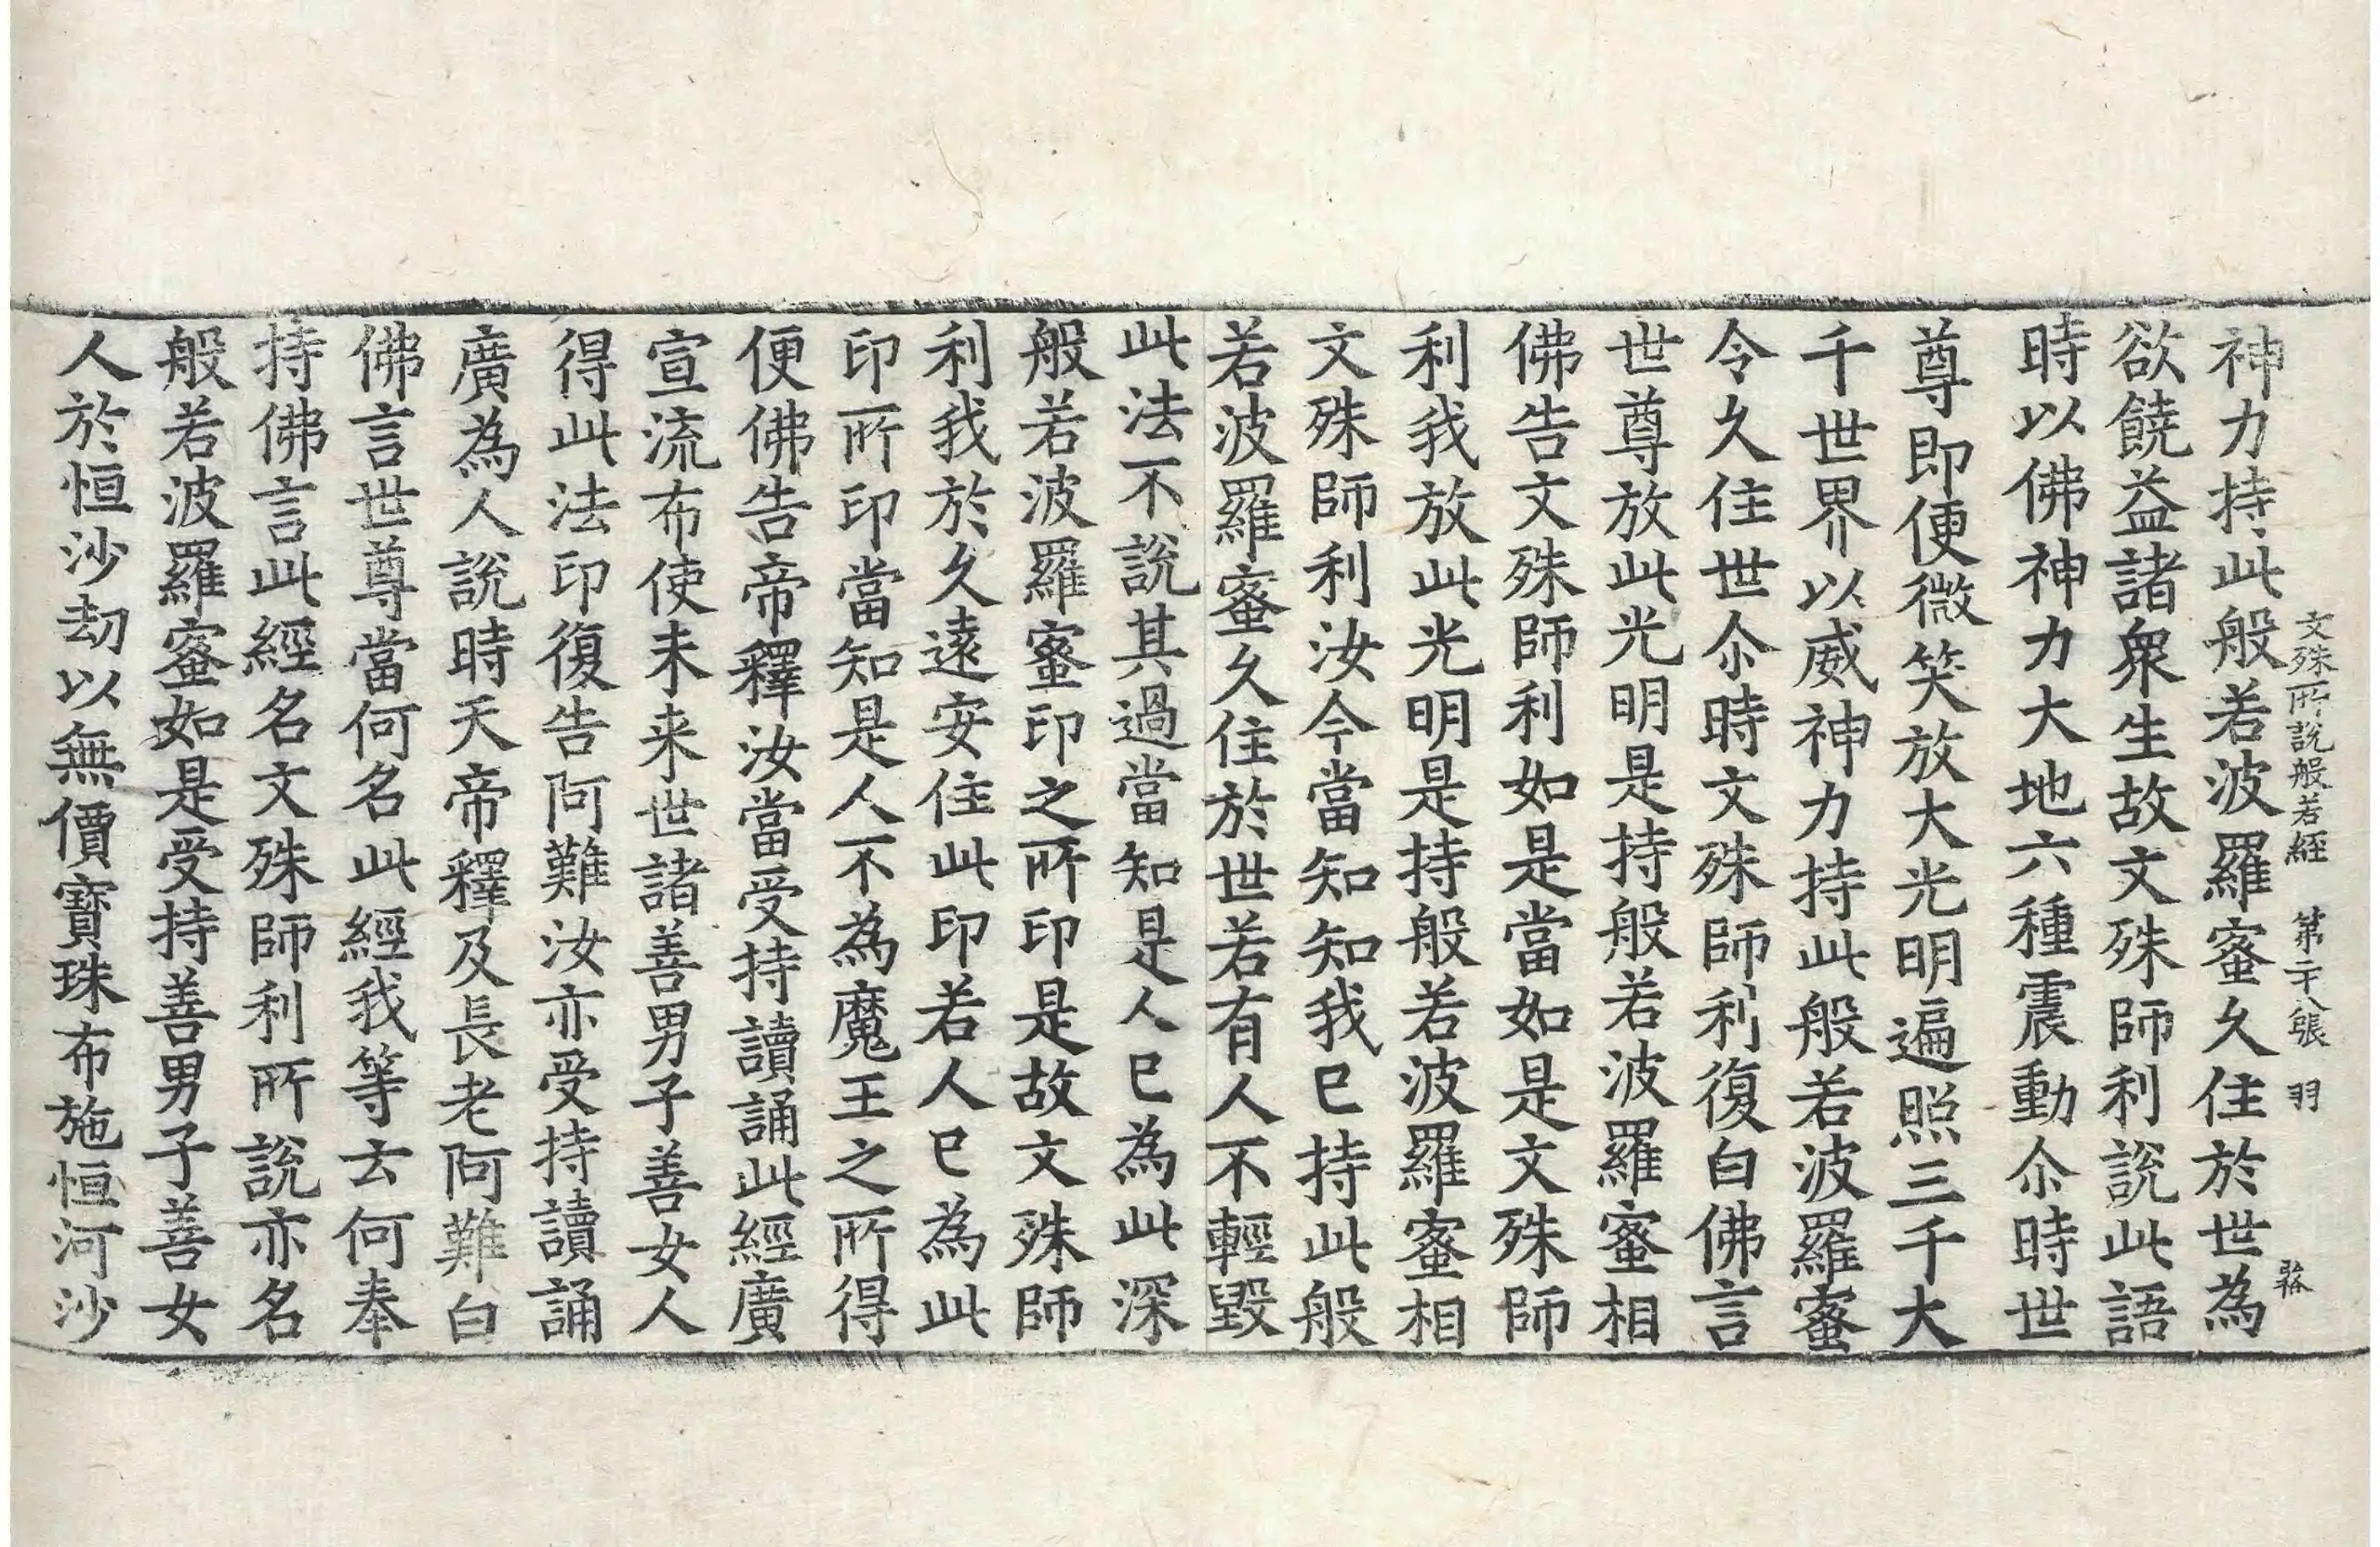 文殊所說般若經 第二十八張 羽
神力持此般若波羅蜜久住於世為
欲饒益諸衆生故文殊師利說此語
時以佛神力大地六種震動尒時世
尊即便微笑放大光明遍照三千大
千世界以威神力持此般若波羅蜜
令久住世尒時文殊師利復白佛言
世尊放此光明是持般若波羅蜜相
佛告文殊師利如是當如是文殊師
利我放此光明是持般若波羅蜜相
文殊師利汝今當知知我已持此般
若波羅蜜久住於世若有人不輕毀
此法不說其過當知是人已為此深
般若波羅蜜印之所印是故文殊師
利我於久遠安住此印若人已為此
印所印當知是人不為魔王之所得
便佛告帝釋汝當受持讀誦此經廣
宣流布使未来世諸善男子善女人
得此法印復告阿難汝亦受持讀誦
廣為人說時天帝釋及長老阿難白
佛言世尊當何名此經我等云何奉
持佛言此經名文殊師利所說亦名
般若波羅蜜如是受持善男子善女
人於恒沙劫以無價寶珠布施恒河沙